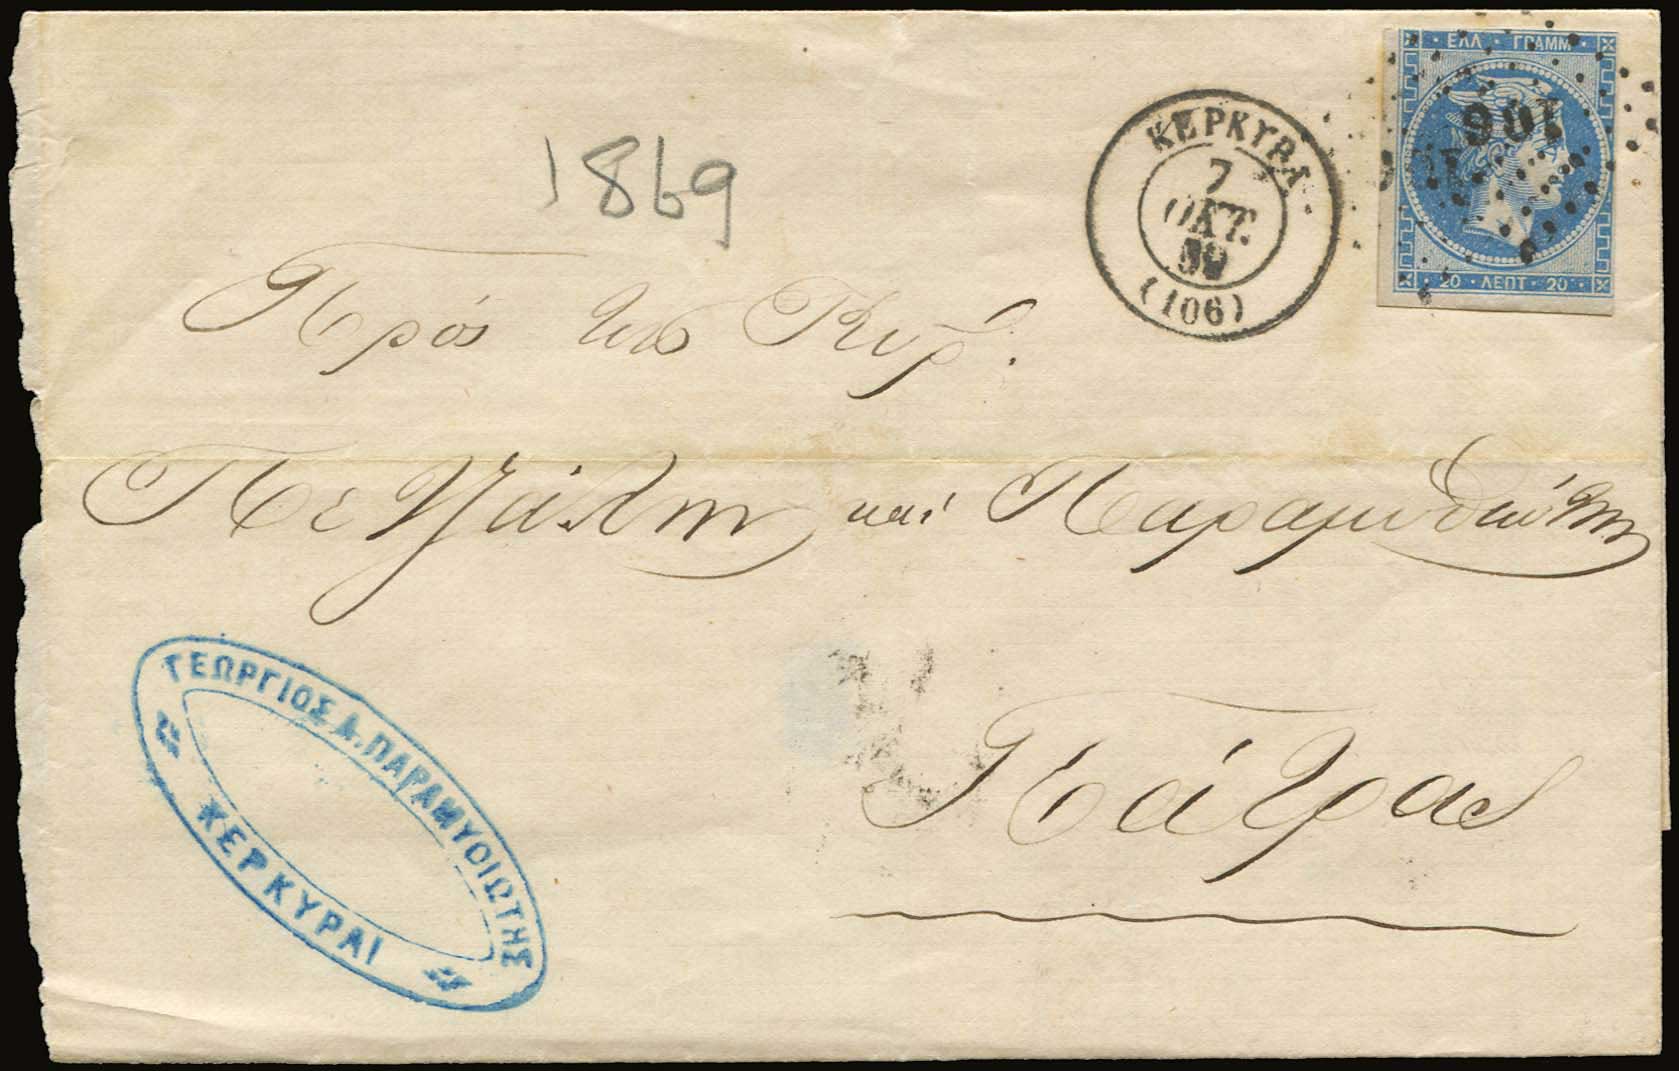 ΕΛΛ · ΓΡΑΜΜ
106
20 · ΛΕΠΤ · 20
ΚΕΡΚΥΡΑ
7
ΟΚΤ.
(106)
1869
Πρὸς τοὺς Κυρ.
καὶ Παραμυθιώτην
Πάτρας
ΓΕΩΡΓΙΟΣ Α. ΠΑΡΑΜΥΘΙΩΤΗΣ
ΚΕΡΚΥΡΑΙ